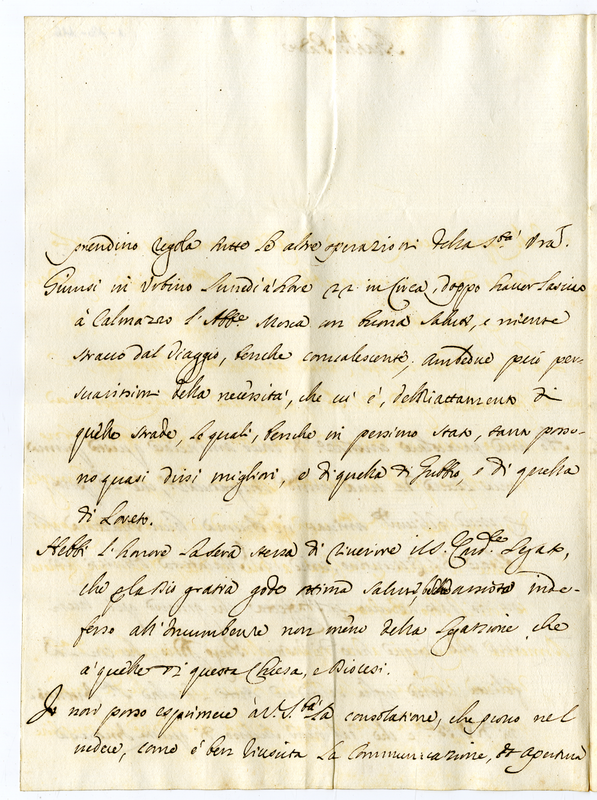 prendino regola tutte le altre operazioni della S.tà Vra.
Giunsi in Urbino lunedì à hore 22 in circa, doppo haver lasciato
à Calmazzo l'Abb.e Mosca con buona salute, e niente
stracco dal viaggio, benche convalescente, ambedue però per-
suasissimi della necessità, che vi è, dell'riattamento di
quelle strade, le quali, benche in pessimo stato, sono posso-
no quasi dirsi migliori, e di quella di Gubbio, e di quella
di Loreto.
Hebbi l'honore la sera stessa di riverire il S. Card.le Legato,
che p la Dio gratia gode ottima salute, assiste inde-
fesso all'incumbenze non meno della Legazione, che
à quelle di questa Chiesa, e Diocesi.
Io non posso esprimere à V. S.tà la consolatione, che provo nel
vedere, come è ben riuscita la communicazione, et apertura